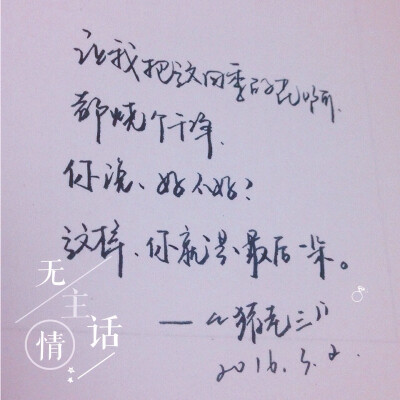 让我把这四季的花啊,
都烧个干净,
你说、好不好?
这样、你就是最后一朵。
2016.3.2.
无主情话